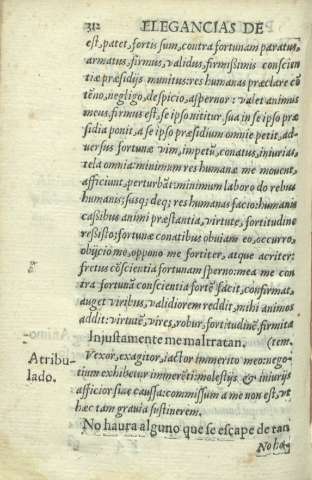 312 ELEGANCIAS DE
est, patet, fortis sum, contra fortunam paratus,
armatus, firmus, validus, firmissimis conscien
tiæ præsidijs munitus: res humanas præclare cō
tēno, negligo, despicio, aspernor: valet animus
meus, firmus est, se ipso nititur, sua in se ipso præ
sidia ponit, a se ipso præsidium omnie petit, ad-
versus fortunæ vim, impetū, conatus, iniurias,
tela omnia: minimum res humanæ me movent,
afficiunt, perturbāt: minimum laboro de rebus
humanis; susq; deq; res humanas facio: humanis
casibus animi præstantia, virtute, fortitudine
resisto; fortunæ conatibus obviam eo, occurro,
obijcio me, oppono me fortiter, atque acriter:
fretus cōscientia fortunam sperno: mea me con
tra fortunā conscientia fortē facit, confirmat,
auget viribus, validiorem reddit, mihi animos
addit: virtutē, vires, robur, fortitudinē, firmita
Injustamente me maltratan. (tem.
Atribu-
lado.
Vexor, exagitor, iactor immerito meo: nego-
tium exhibetur immerēti: molestijs & iniurijs
afficior sine caussa: commissum a me non est, vt
hæc tam gravia sustinerem.
No haura alguno que se escape de tan
No hay